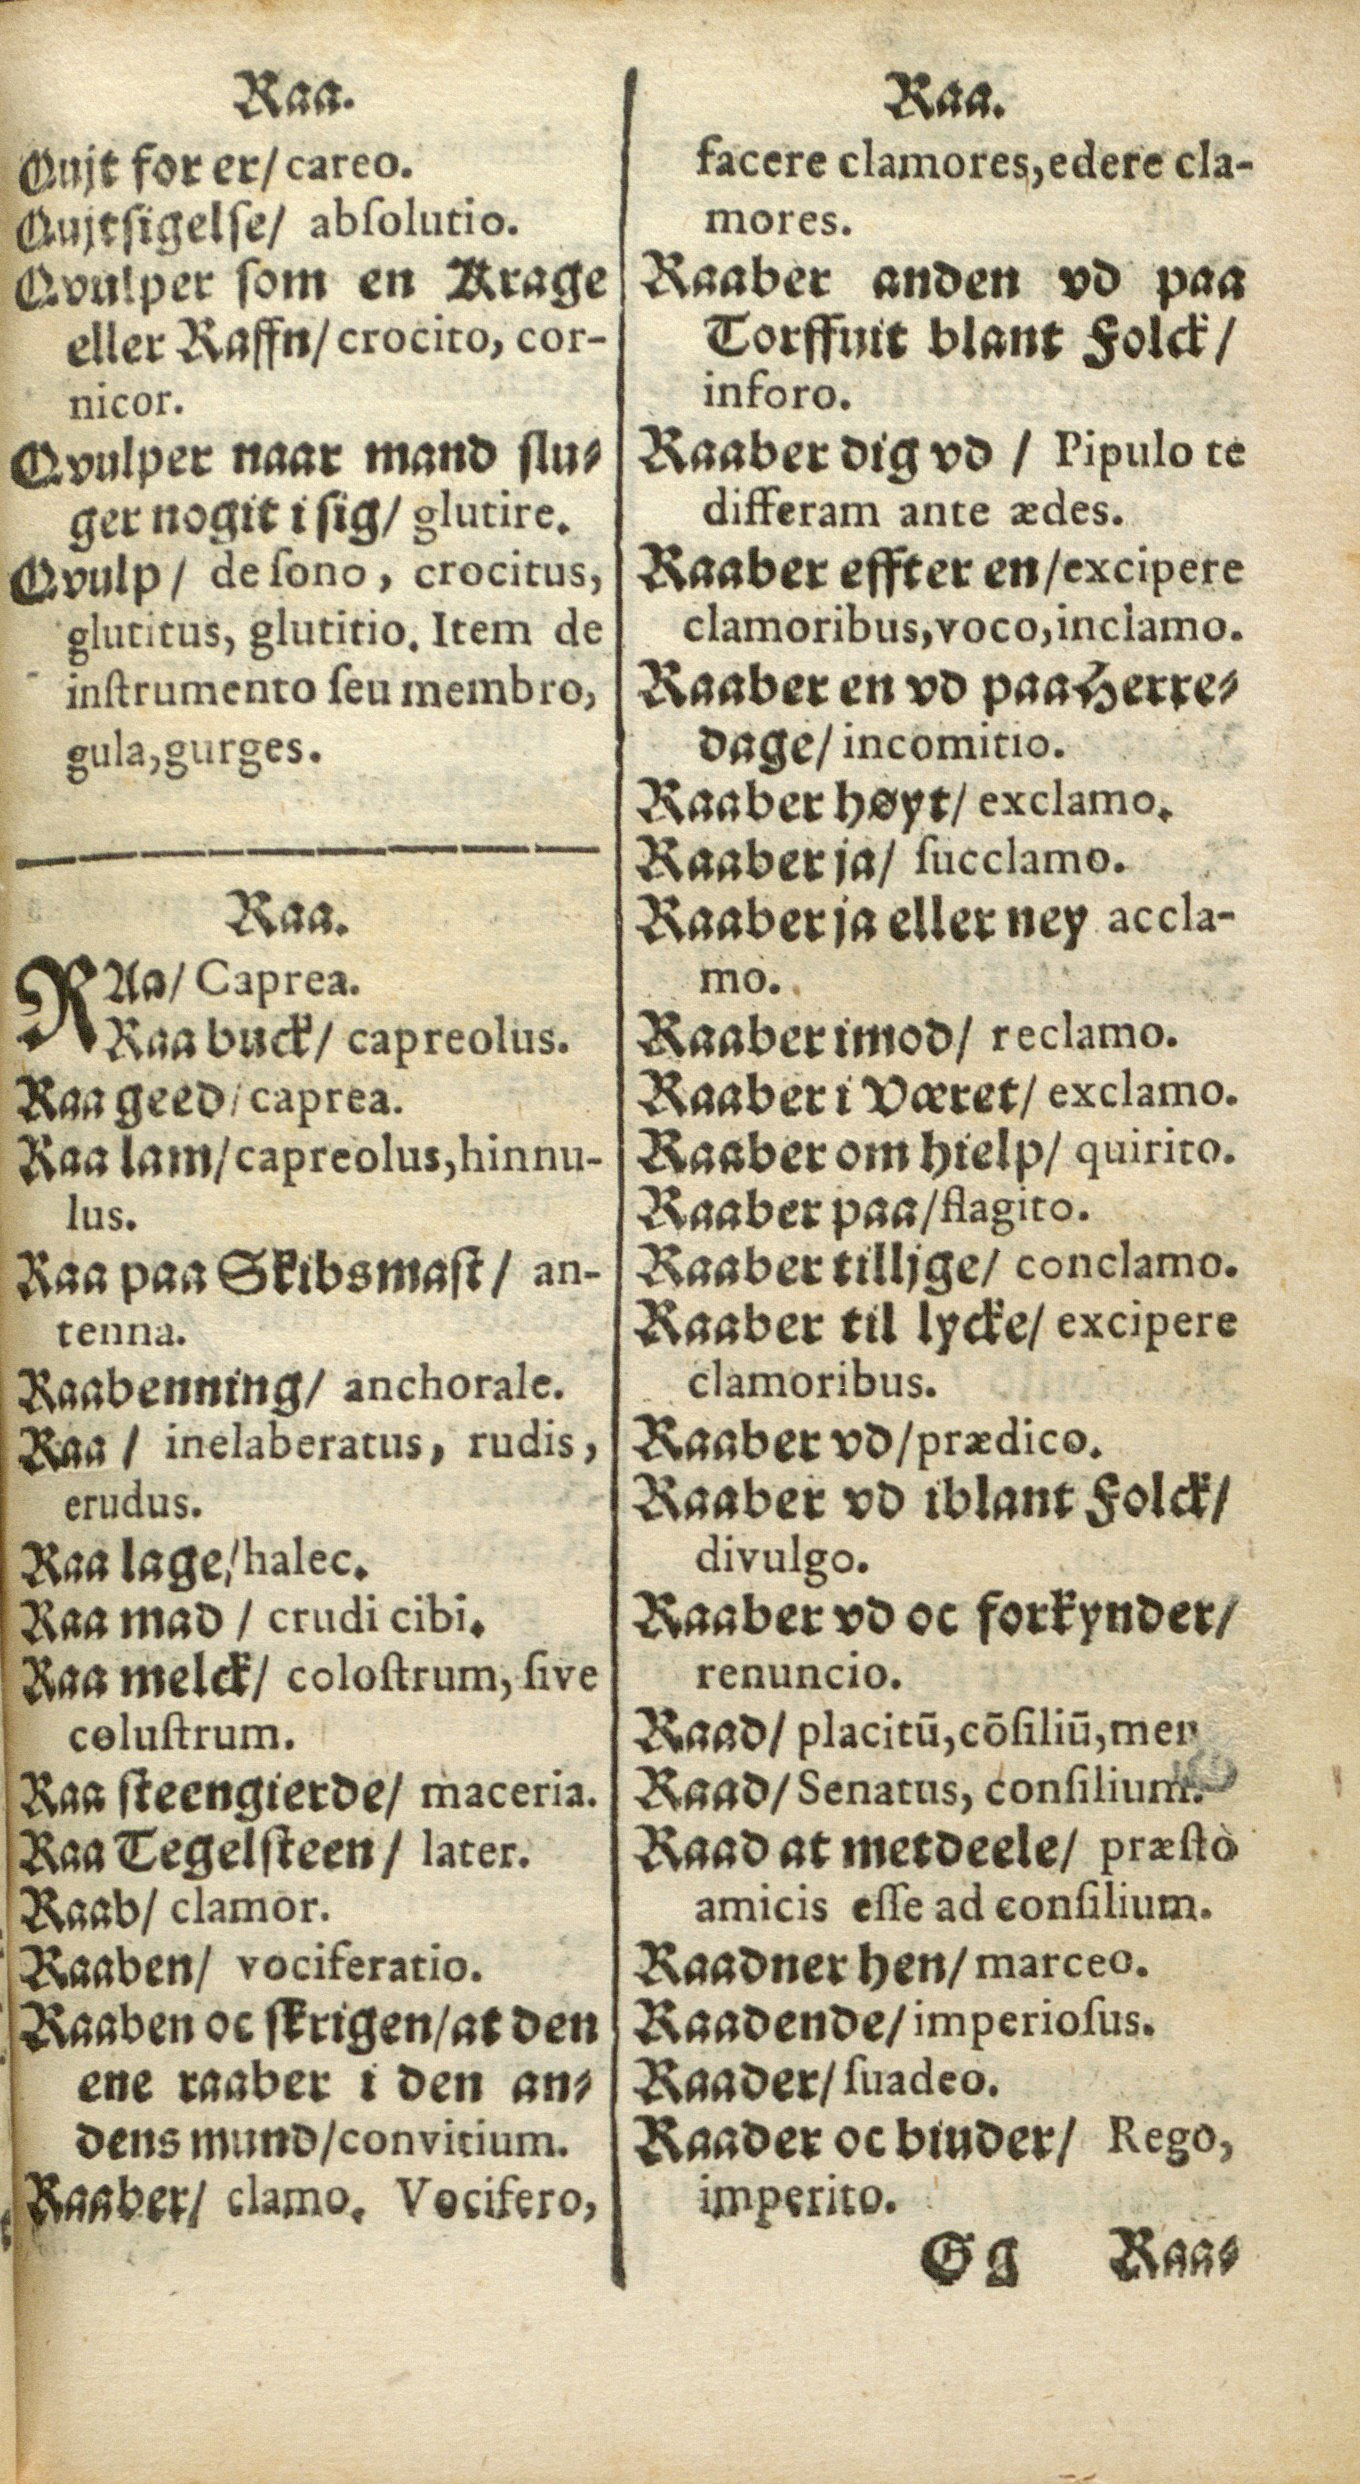 Raa.
Qujt for er/ careo.
Qujtsigelse/ absolutio.
Qvulper som en Krage
eller Raffn/ crocito, cor-
nicor.
Qvulper naar mand slu-
ger nogit i sig/ glutire.
Qvulp/ de sono, crocitus,
glutitus, glutitio. Item de
instrumento seu membro,
gula, gurges.
Raa.
RAa/ Caprea.
Raa buck/ capreolus.
Raa geed/ caprea.
Raa lam/ capreolus, hinnu-
lus.
Raa paa Skibsmast/ an-
tenna.
Raabenning/ anchorale.
Raa/ inelaberatus, rudis,
erudus.
Raa lage/ halec.
Raa mad/ crudi cibi.
Raa melck/ colostrum, sive
colustrum.
Raa steengierde/ maceria.
Raa Tegelsteen/ later.
Raab/ clamor.
Raaben/ vociferatio.
Raaben oc skrigen/ at den
ene raaber i den an-
dens mund/ convitium.
Raaber/ clamo. Vocifero,
Raa.
facere clamores, edere cla-
mores.
Raaber anden vd paa
Torffuit blant Folck/
inforo.
Raaber dig vd/ Pipulo te
differam ante ædes.
Raaber effter en/ excipere
clamoribus, voco, inclamo.
Raaber en vd paa Herre-
dage/ incomitio.
Raaber høyt/ exclamo.
Raaber ja/ succlamo.
Raaber ja eller ney accla-
mo.
Raaber imod/ reclamo.
Raaber i Været/ exclamo.
Raaber om hielp/ quirito.
Raaber paa/ flagito.
Raaber tilljge/ conclamo.
Raaber til lycke/ excipere
clamoribus.
Raaber vd/ prædico.
Raaber vd iblant Folck/
divulgo.
Raaber vd oc forkynder/
renuncio.
Raad/ placitū, cōsiliū,
Raad/ Senatus, consilium.
Raad at metdeele/ præstò
amicis esse ad consilium.
Raadner hen/ marceo.
Raadende/ imperiosus.
Raader/ suadeo.
Raader oc biuder/ Rego,
imperito.
Gg Raa-